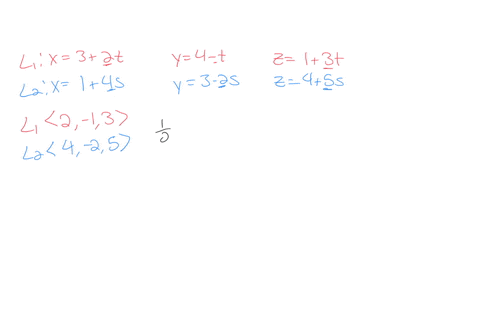 L₁: x = 3 + 2t y = 4 - t z = 1 + 3t
L₂: x = 1 + 4s y = 3 - 2s z = 4 + 5s
L₁ < 2, -1, 3 >
1/2
L₂ < 4, -2, 5 >